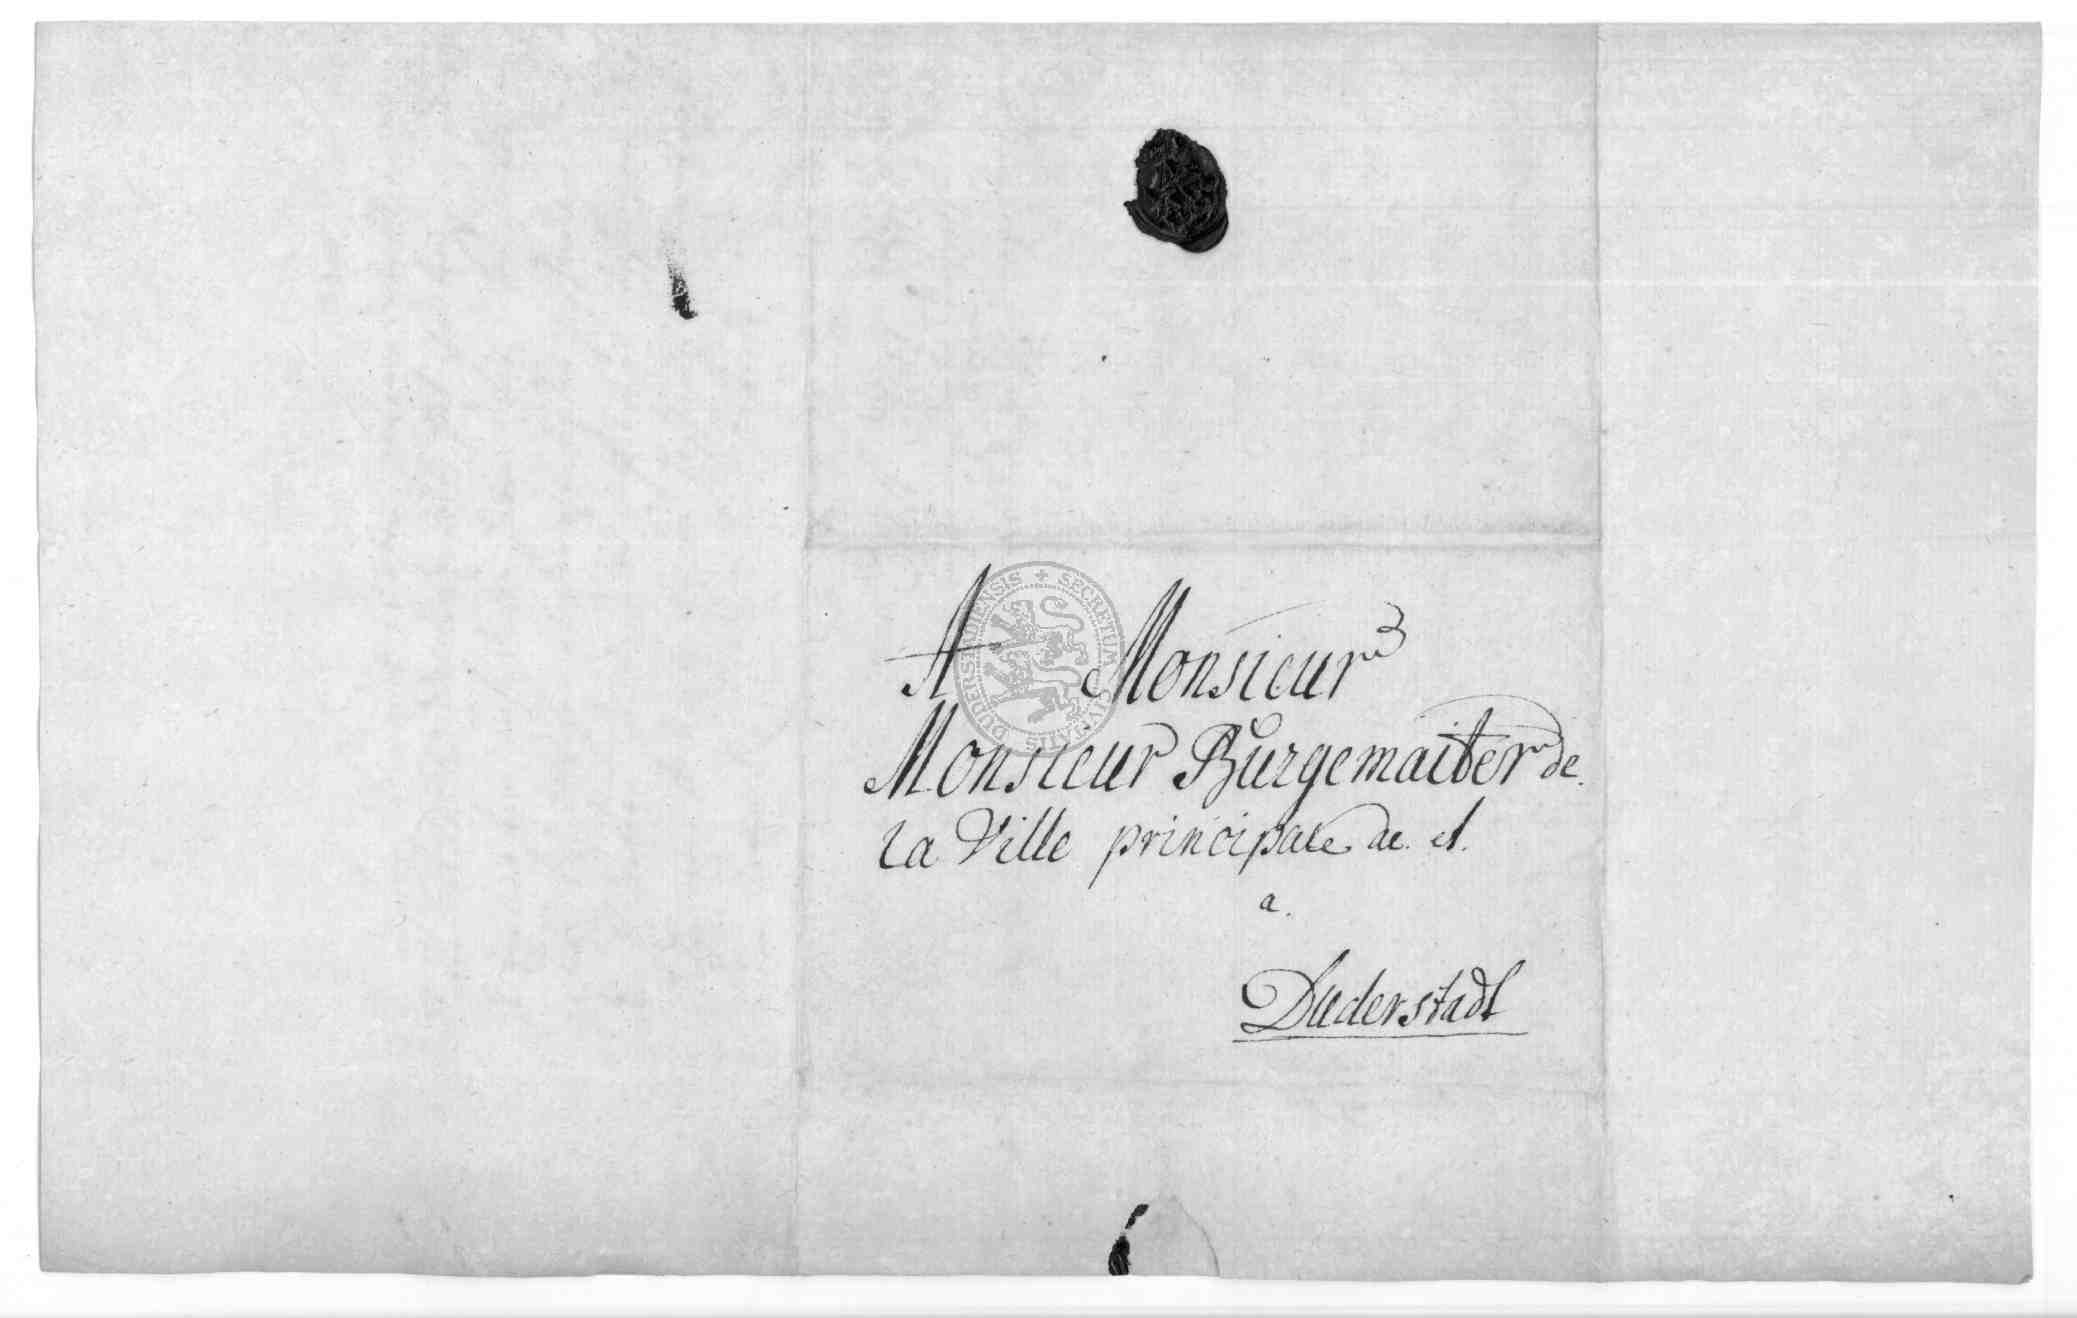 A Monsieur
Monsieur Burgemaiter de
la Ville principale de et.
a.
Duderstadt
SECRETUM CIVITATIS DUDERSTADENSIS